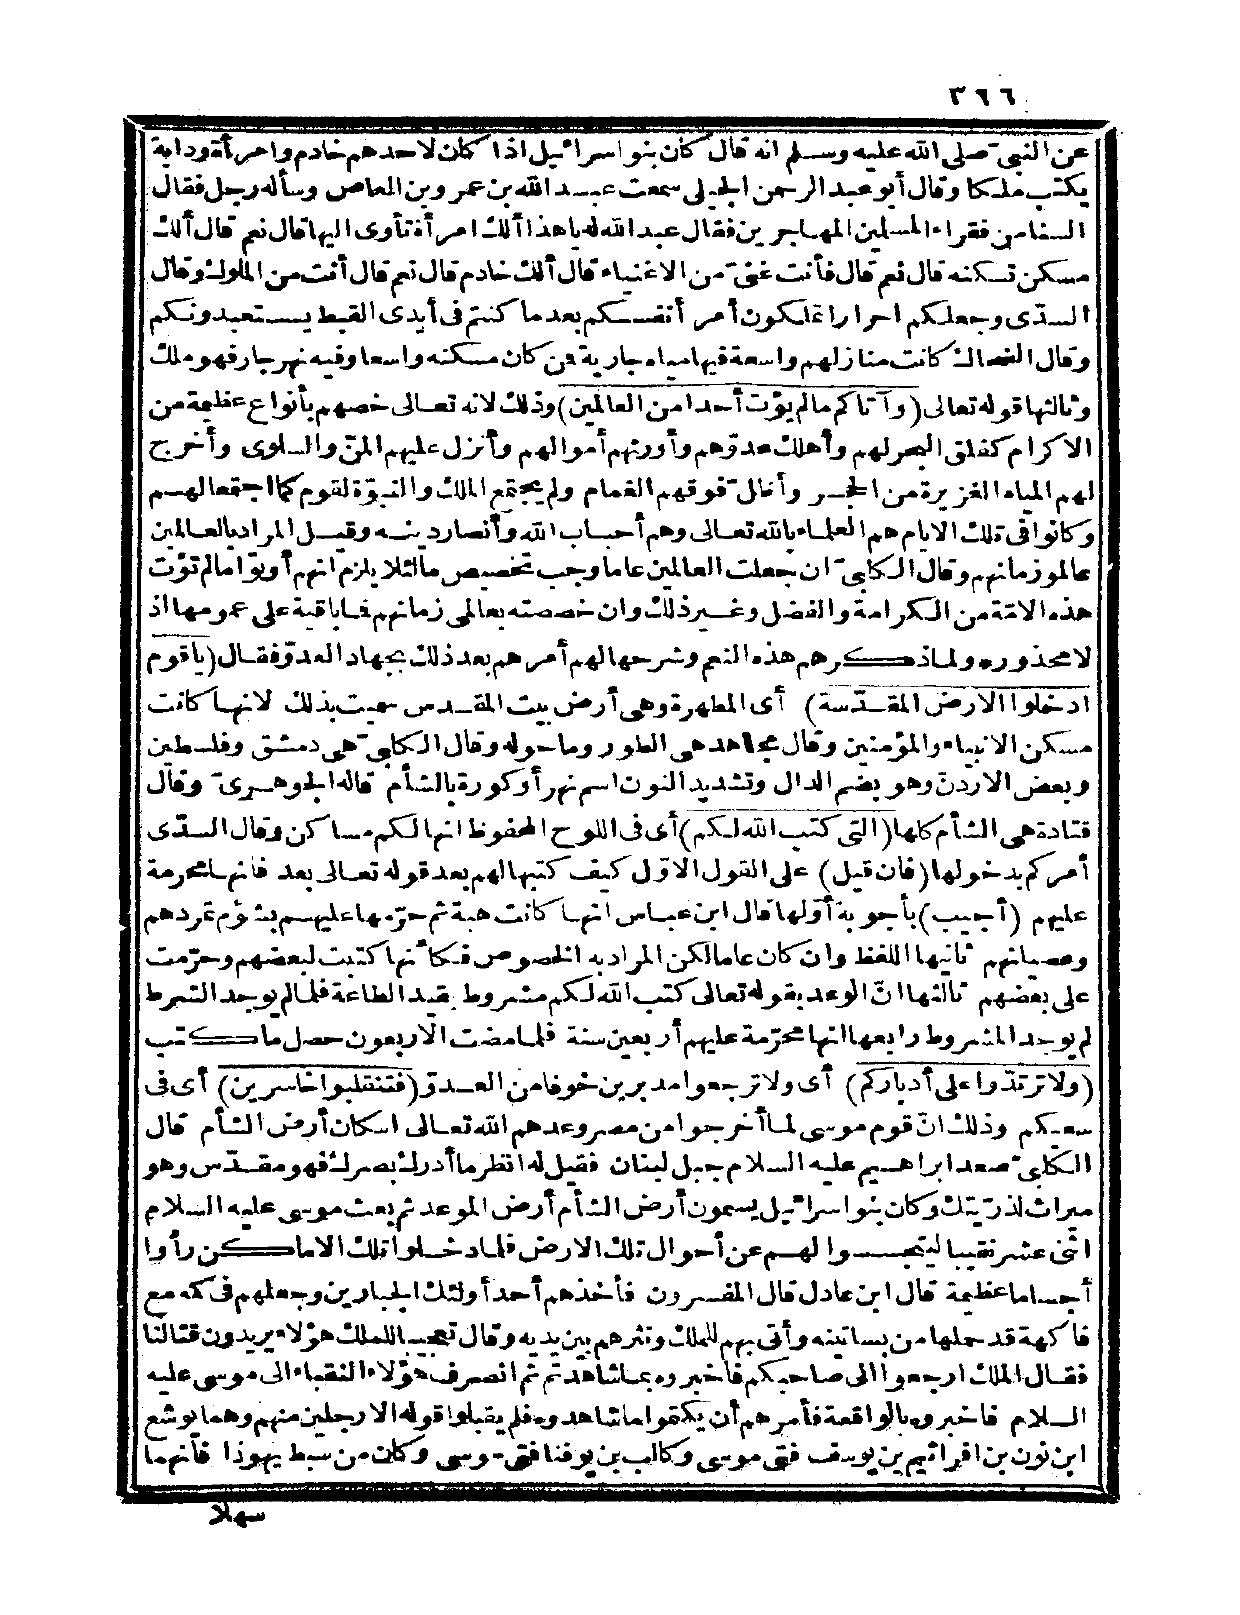 ٣٦٦
عن النبي صلى الله عليه وسلم انه قال كان بنو اسرائيل اذا كان لاحدهم خادم وامرأة ودابة
يكتب ملكا وقال أبو عبد الرحمن الحبلى سمعت عبد الله بن عمرو بن العاص وسأله رجل فقال
ألسنا من فقراء المسلمين المهاجرين فقال عبد الله له يا هذا ألك امرأة تأوى اليها قال نعم قال ألك
مسكن تسكنه قال نعم قال فأنت غنىّ من الاغنياء قال ألك خادم قال نعم قال أنت من الملوك وقال
السدّى وجعلكم احرارا تملكون أمر أنفسكم بعد ما كنتم فى أيدى القبط يستعبدونكم
وقال الضحاك كانت منازلهم واسعة فيها مياه جارية فمن كان مسكنه واسعا وفيه نهر جار فهو ملك
وثالثها قوله تعالى (وآتاكم مالم يؤت أحدا من العالمين) وذلك لانه تعالى خصهم بأنواع عظيمة من
الاكرام كفلق البحر لهم وأهلك عدوّهم وأورثهم أموالهم وأنزل عليهم المنّ والسلوى وأخرج
لهم المياه الغزيرة من الحجر وأظل فوقهم الغمام ولم يجتمع الملك والنبوّة لقوم كما اجتمعا لهم
وكانوا فى تلك الايام هم العلماء بالله تعالى وهم أحباب الله وأنصار دينه وقيل المراد بالعالمين
عالمو زمانهم وقال الكلبىّ ان جعلت العالمين عاما وجب تخصيص ما لئلا يلزم انهم أوتوا ما لم تؤت
هذه الامّة من الكرامة والفضل وغير ذلك وان خصصته بعالمى زمانهم فما باقية على عمومها اذ
لا محذور ه ولما ذكرهم هذه النعم وشرحها لهم أمرهم بعد ذلك بجهاد العدوّ فقال (ياقوم
ادخلوا الارض المقدّسة) أى المطهرة وهى أرض بيت المقدس سميت بذلك لانها كانت
مسكن الانبياء والمؤمنين وقال مجاهد هى الطور وما حوله وقال الكلبىّ هى دمشق وفلسطين
وبعض الاردنّ وهو بضم الدال وتشديد النون اسم نهر أو كورة بالشأم قاله الجوهرىّ وقال
قتادة هى الشأم كلها (التى كتب الله لكم) أى فى اللوح المحفوظ انها لكم مساكن وقال السدّى
أمركم بدخولها (فان قيل) على القول الاوّل كيف كتبها لهم بعد قوله تعالى بعد فانها محرمة
عليهم (أجيب) بأجوبة أوّلها قال ابن عباس انها كانت هبة ثم حرّمها عليهم بشؤم تمردهم
وعصيانهم ثانيها اللفظ وان كان عاما لكن المراد به الخصوص فكأنها كتبت لبعضهم وحرّمت
على بعضهم ثالثها انّ الوعد بقوله تعالى كتب الله لكم مشروط بقيد الطاعة فلما لم يوجد الشرط
لم يوجد المشروط رابعها انها محرّمة عليهم أربعين سنة فلما مضت الاربعون حصل ما كتب
(ولا ترتدّوا على أدباركم) أى ولا ترجعوا مدبرين خوفا من العدوّ (فتنقلبوا خاسرين) أى فى
سعيكم وذلك انّ قوم موسى لما أخرجوا من مصر وعدهم الله تعالى اسكان أرض الشأم قال
الكلبىّ صعد ابراهيم عليه السلام جبل لبنان فقيل له انظر ما أدرك بصرك فهو مقدّس وهو
ميراث لذرّيتك وكان بنو اسرائيل يسمون أرض الشأم أرض الموعد ثم بعث موسى عليه السلام
اثنى عشر نقيبا ليتجسسوا لهم عن أحوال تلك الارض فلما دخلوا تلك الاماكن رأوا
أجساما عظيمة قال ابن عادل قال المفسرون فأخذهم أحد أولئك الجبارين وجعلهم فى كمه مع
فاكهة قد حملها من بساتينه وأتى بهم للملك ونثرهم بين يديه وقال تعجبا للملك هؤلاء يريدون قتالنا
فقال الملك ارجعوا الى صاحبكم فأخبروه بما شاهدتم ثم انصرف هؤلاء النقباء الى موسى عليه
السلام فأخبروه بالواقعة فأمرهم أن يكتموا ما شاهدوه فلم يقبلوا قوله الا رجلين منهم وهما يوشع
ابن نون بن افرائيم بن يوسف فتى موسى وكالب بن يوفنا فتى موسى وكان من سبط يهوذا فأنهما
سهلا